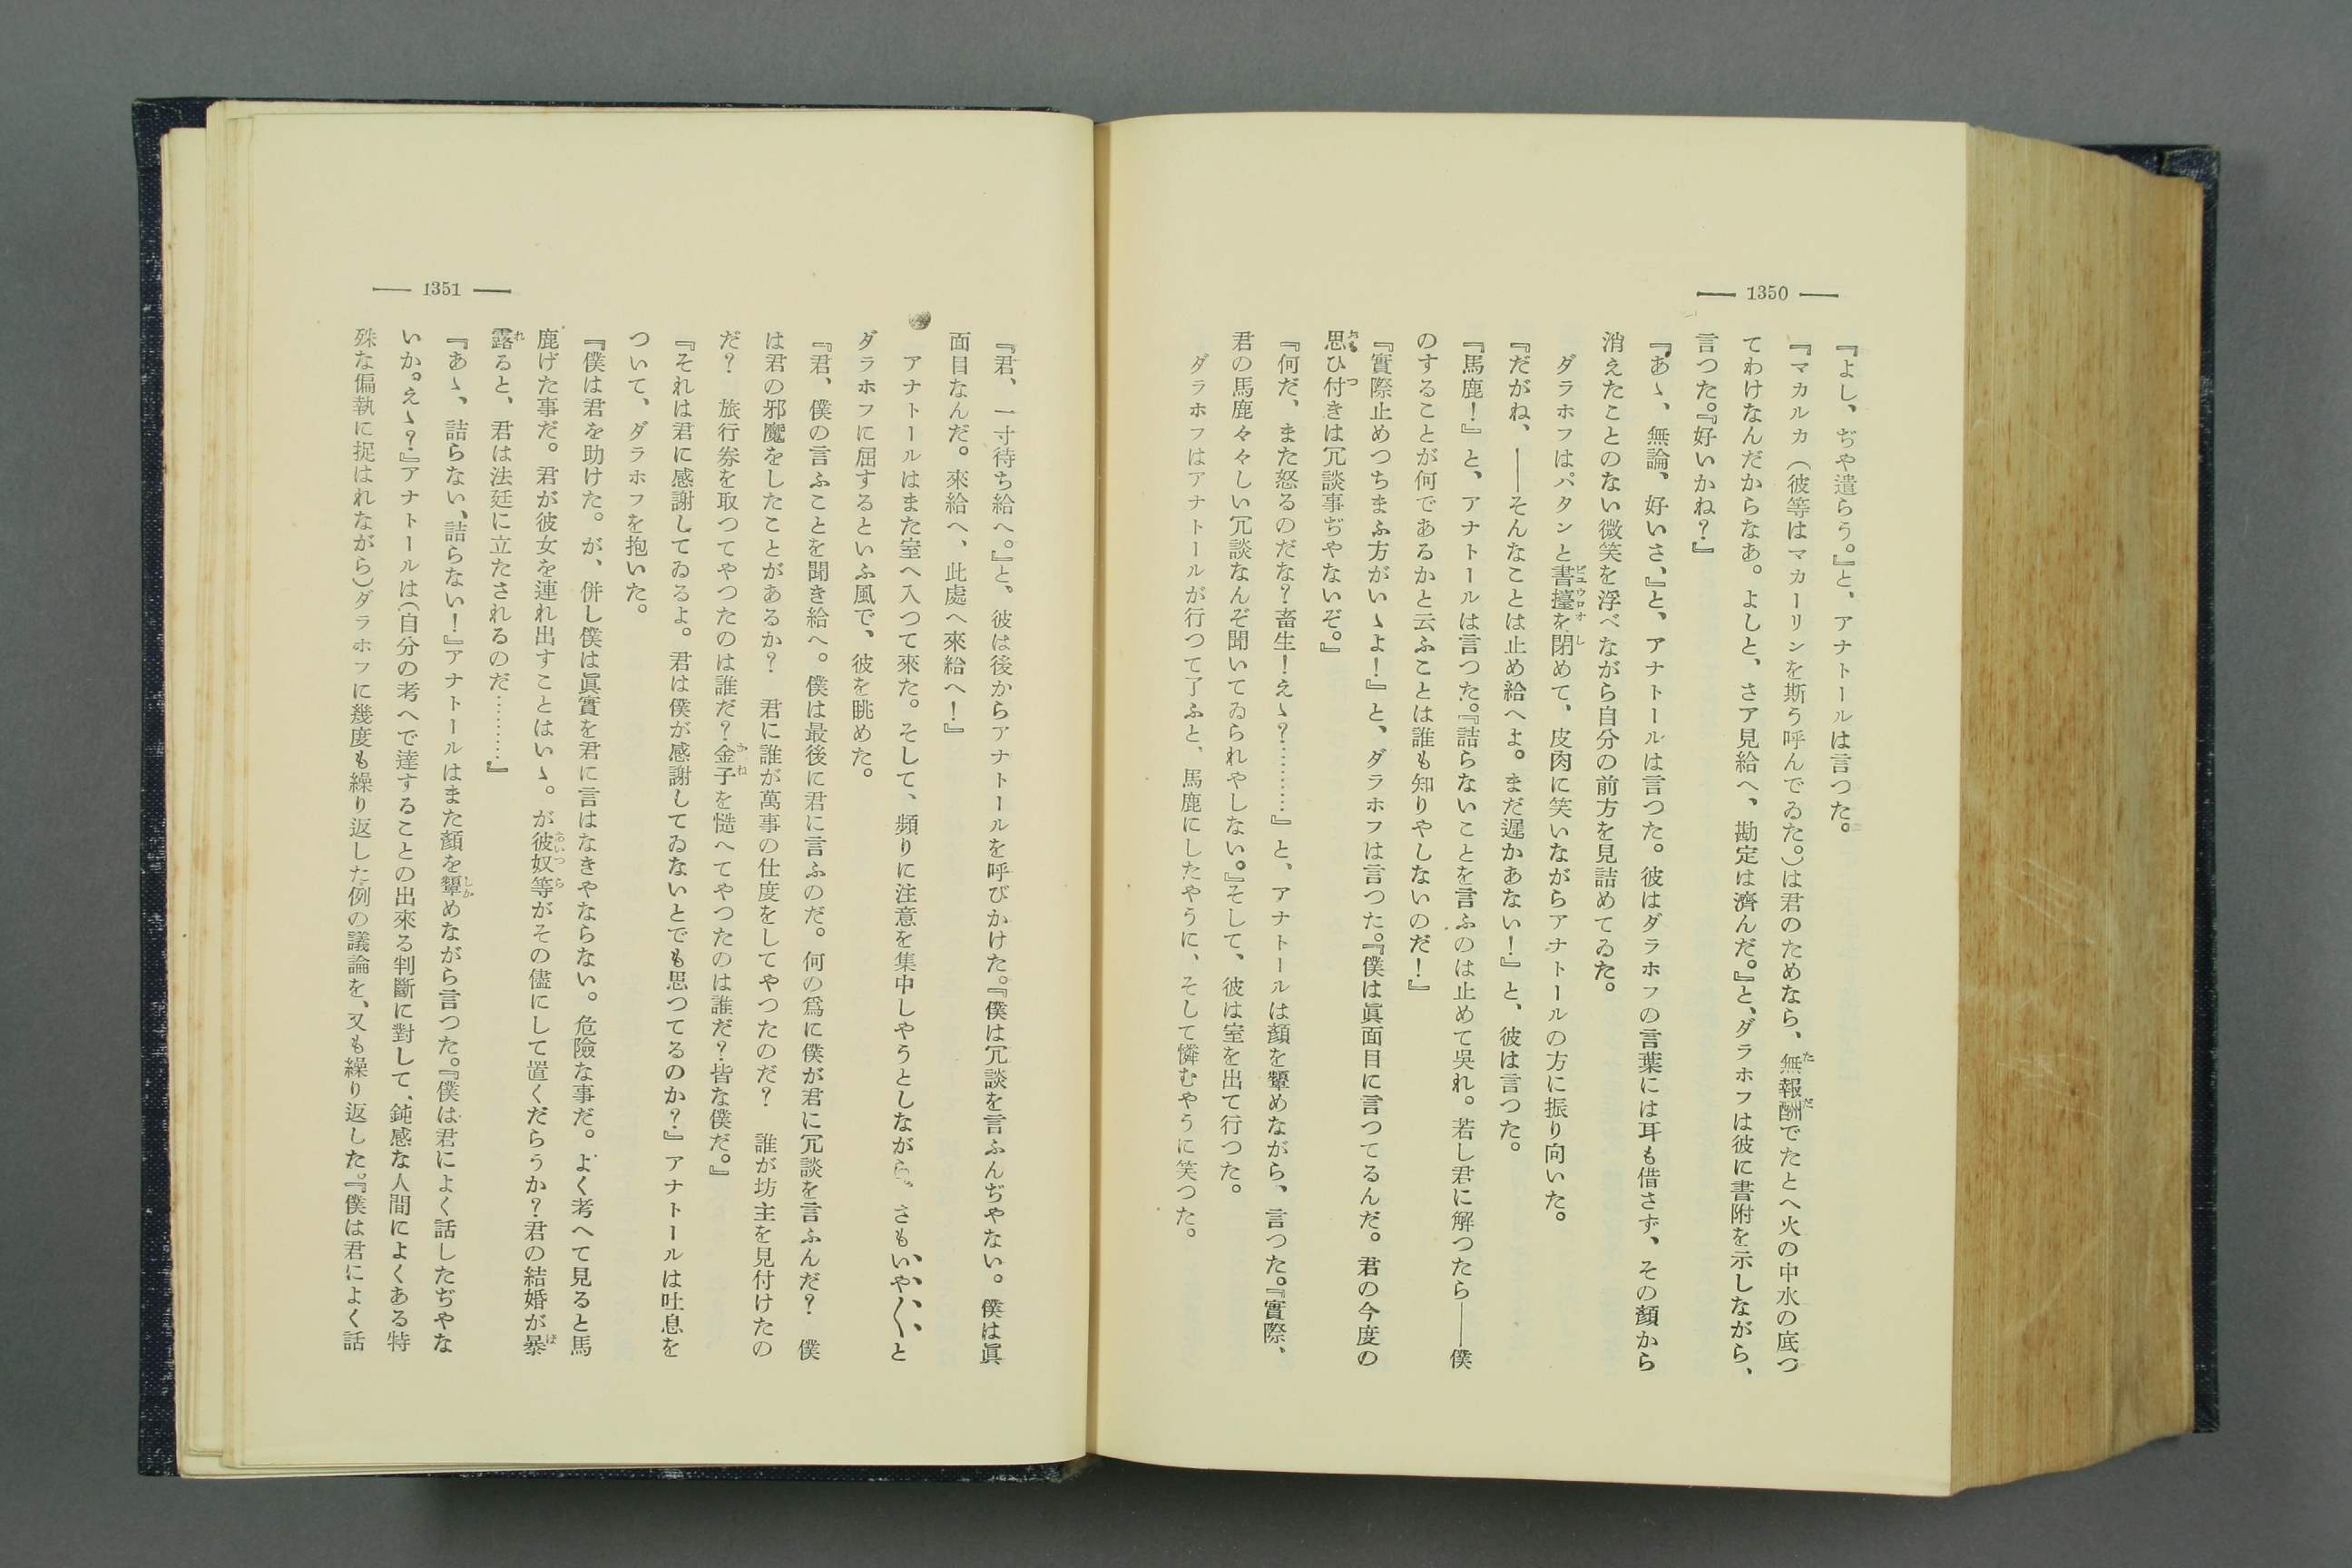 — 1350 —
『よし、ぢや遣らう。』と、アナトールは言つた。
『マカルカ（彼等はマカーリンを斯う呼んでゐた。）は君のためなら、無報酬でたとへ火の中水の底つ
てわけなんだからなあ。よしと、さア見給へ、勘定は濟んだ。』と、ダラホフは彼に書附を示しながら、
言つた。『好いかね？』
『あゝ、無論、好いさ、』と、アナトールは言つた。彼はダラホフの言葉には耳も借さず、その顏から
消えたことのない微笑を浮べながら自分の前方を見詰めてゐた。
ダラホフはパタンと書擡を閉めて、皮肉に笑いながらアナトールの方に振り向いた。
『だがね、――そんなことは止め給へよ。まだ遲かあない！』と、彼は言つた。
『馬鹿！』と、アナトールは言つた。『詰らないことを言ふのは止めて吳れ。若し君に解つたら――僕
のすることが何であるかと云ふことは誰も知りやしないのだ！』
『實際止めつちまふ方がいゝよ！』と、ダラホフは言つた。『僕は眞面目に言つてるんだ。君の今度の
思ひ付きは冗談事ぢやないぞ。』
『何だ、また怒るのだな？畜生！えゝ？………』と、アナトールは顏を顰めながら、言つた。『實際、
君の馬鹿々々しい冗談なんぞ聞いてゐられやしない。』そして、彼は室を出て行つた。
ダラホフはアナトールが行つて了ふと、馬鹿にしたやうに、そして憐むやうに笑つた。
— 1351 —
『君、一寸待ち給へ。』と、彼は後からアナトールを呼びかけた。『僕は冗談を言ふんぢやない。僕は眞
面目なんだ。來給へ、此處へ來給へ！』
アナトールはまた室へ入つて來た。そして、頻りに注意を集中しやうとしながら、さもいや〳〵と
ダラホフに屈するといふ風で、彼を眺めた。
『君、僕の言ふことを聞き給へ。僕は最後に君に言ふのだ。何の爲に僕が君に冗談を言ふんだ？　僕
は君の邪魔をしたことがあるか？　君に誰が萬事の仕度をしてやつたのだ？　誰が坊主を見付けたの
だ？　旅行券を取つてやつたのは誰だ？金子を慥へてやつたのは誰だ？皆な僕だ。』
『それは君に感謝してゐるよ。君は僕が感謝してゐないとでも思つてるのか？』アナトールは吐息を
ついて、ダラホフを抱いた。
『僕は君を助けた。が、併し僕は眞實を君に言はなきやならない。危險な事だ。よく考へて見ると馬
鹿げた事だ。君が彼女を連れ出すことはいゝ。が彼奴等がその儘にして置くだらうか？君の結婚が暴
露ると、君は法廷に立たされるのだ………』
『あゝ、詰らない、詰らない！』アナトールはまた顏を顰めながら言つた。『僕は君によく話したぢやな
いか。えゝ？』アナトールは（自分の考へで達することの出來る判斷に對して、鈍感な人間によくある特
殊な偏執に捉はれながら）ダラホフに幾度も繰り返した例の議論を、又も繰り返した。『僕は君によく話